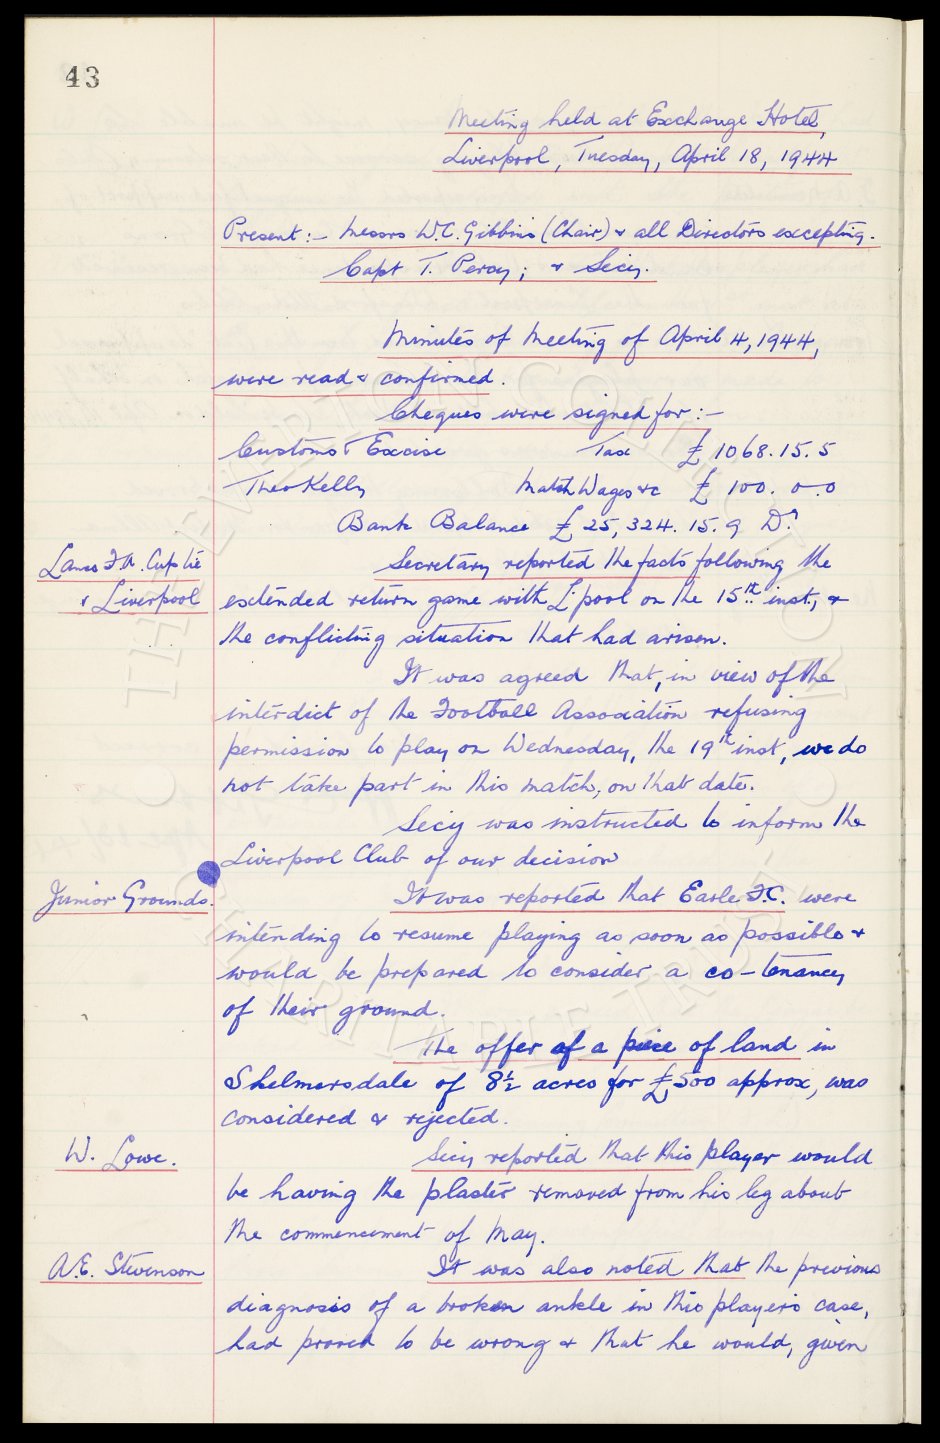 43
Meeting held at Exchange Hotel,
Liverpool, Tuesday, April 18, 1944
Present:- Messrs W.C. Gibbins (Chair) & all Directors excepting
Capt T. Percy; & Secy.
Minutes of Meeting of April 4, 1944,
were read & confirmed.
Cheques were signed for:-
Customs & Excise Tax £1068.15.5
Theo Kelly Match Wages &c £100.0.0
Bank Balance £25,324.15.9 Dr
Lancs F.A. Cup tie
v Liverpool
Secretary reported the facts following the
extended return game with L'pool on the 15th inst, &
the conflicting situation that had arisen.
It was agreed that, in view of the
interdict of the Football Association refusing
permission to play on Wednesday, the 19th inst, we do
not take part in this match, on that date.
Secy was instructed to inform the
Liverpool Club of our decision
Junior Grounds.
It was reported that Earle F.C. were
intending to resume playing as soon as possible &
would be prepared to consider a co-tenancy
of their ground.
The offer of a piece of land in
Skelmersdale of 8½ acres for £500 approx, was
considered & rejected.
W. Lowe.
Secy reported that this player would
be having the plaster removed from his leg about
the commencement of May.
A.E. Stevenson
It was also noted that the previous
diagnosis of a broken ankle in this player's case,
had proved to be wrong & that he would, given
THE EVERTON COLLECTION
CHARITABLE TRUST